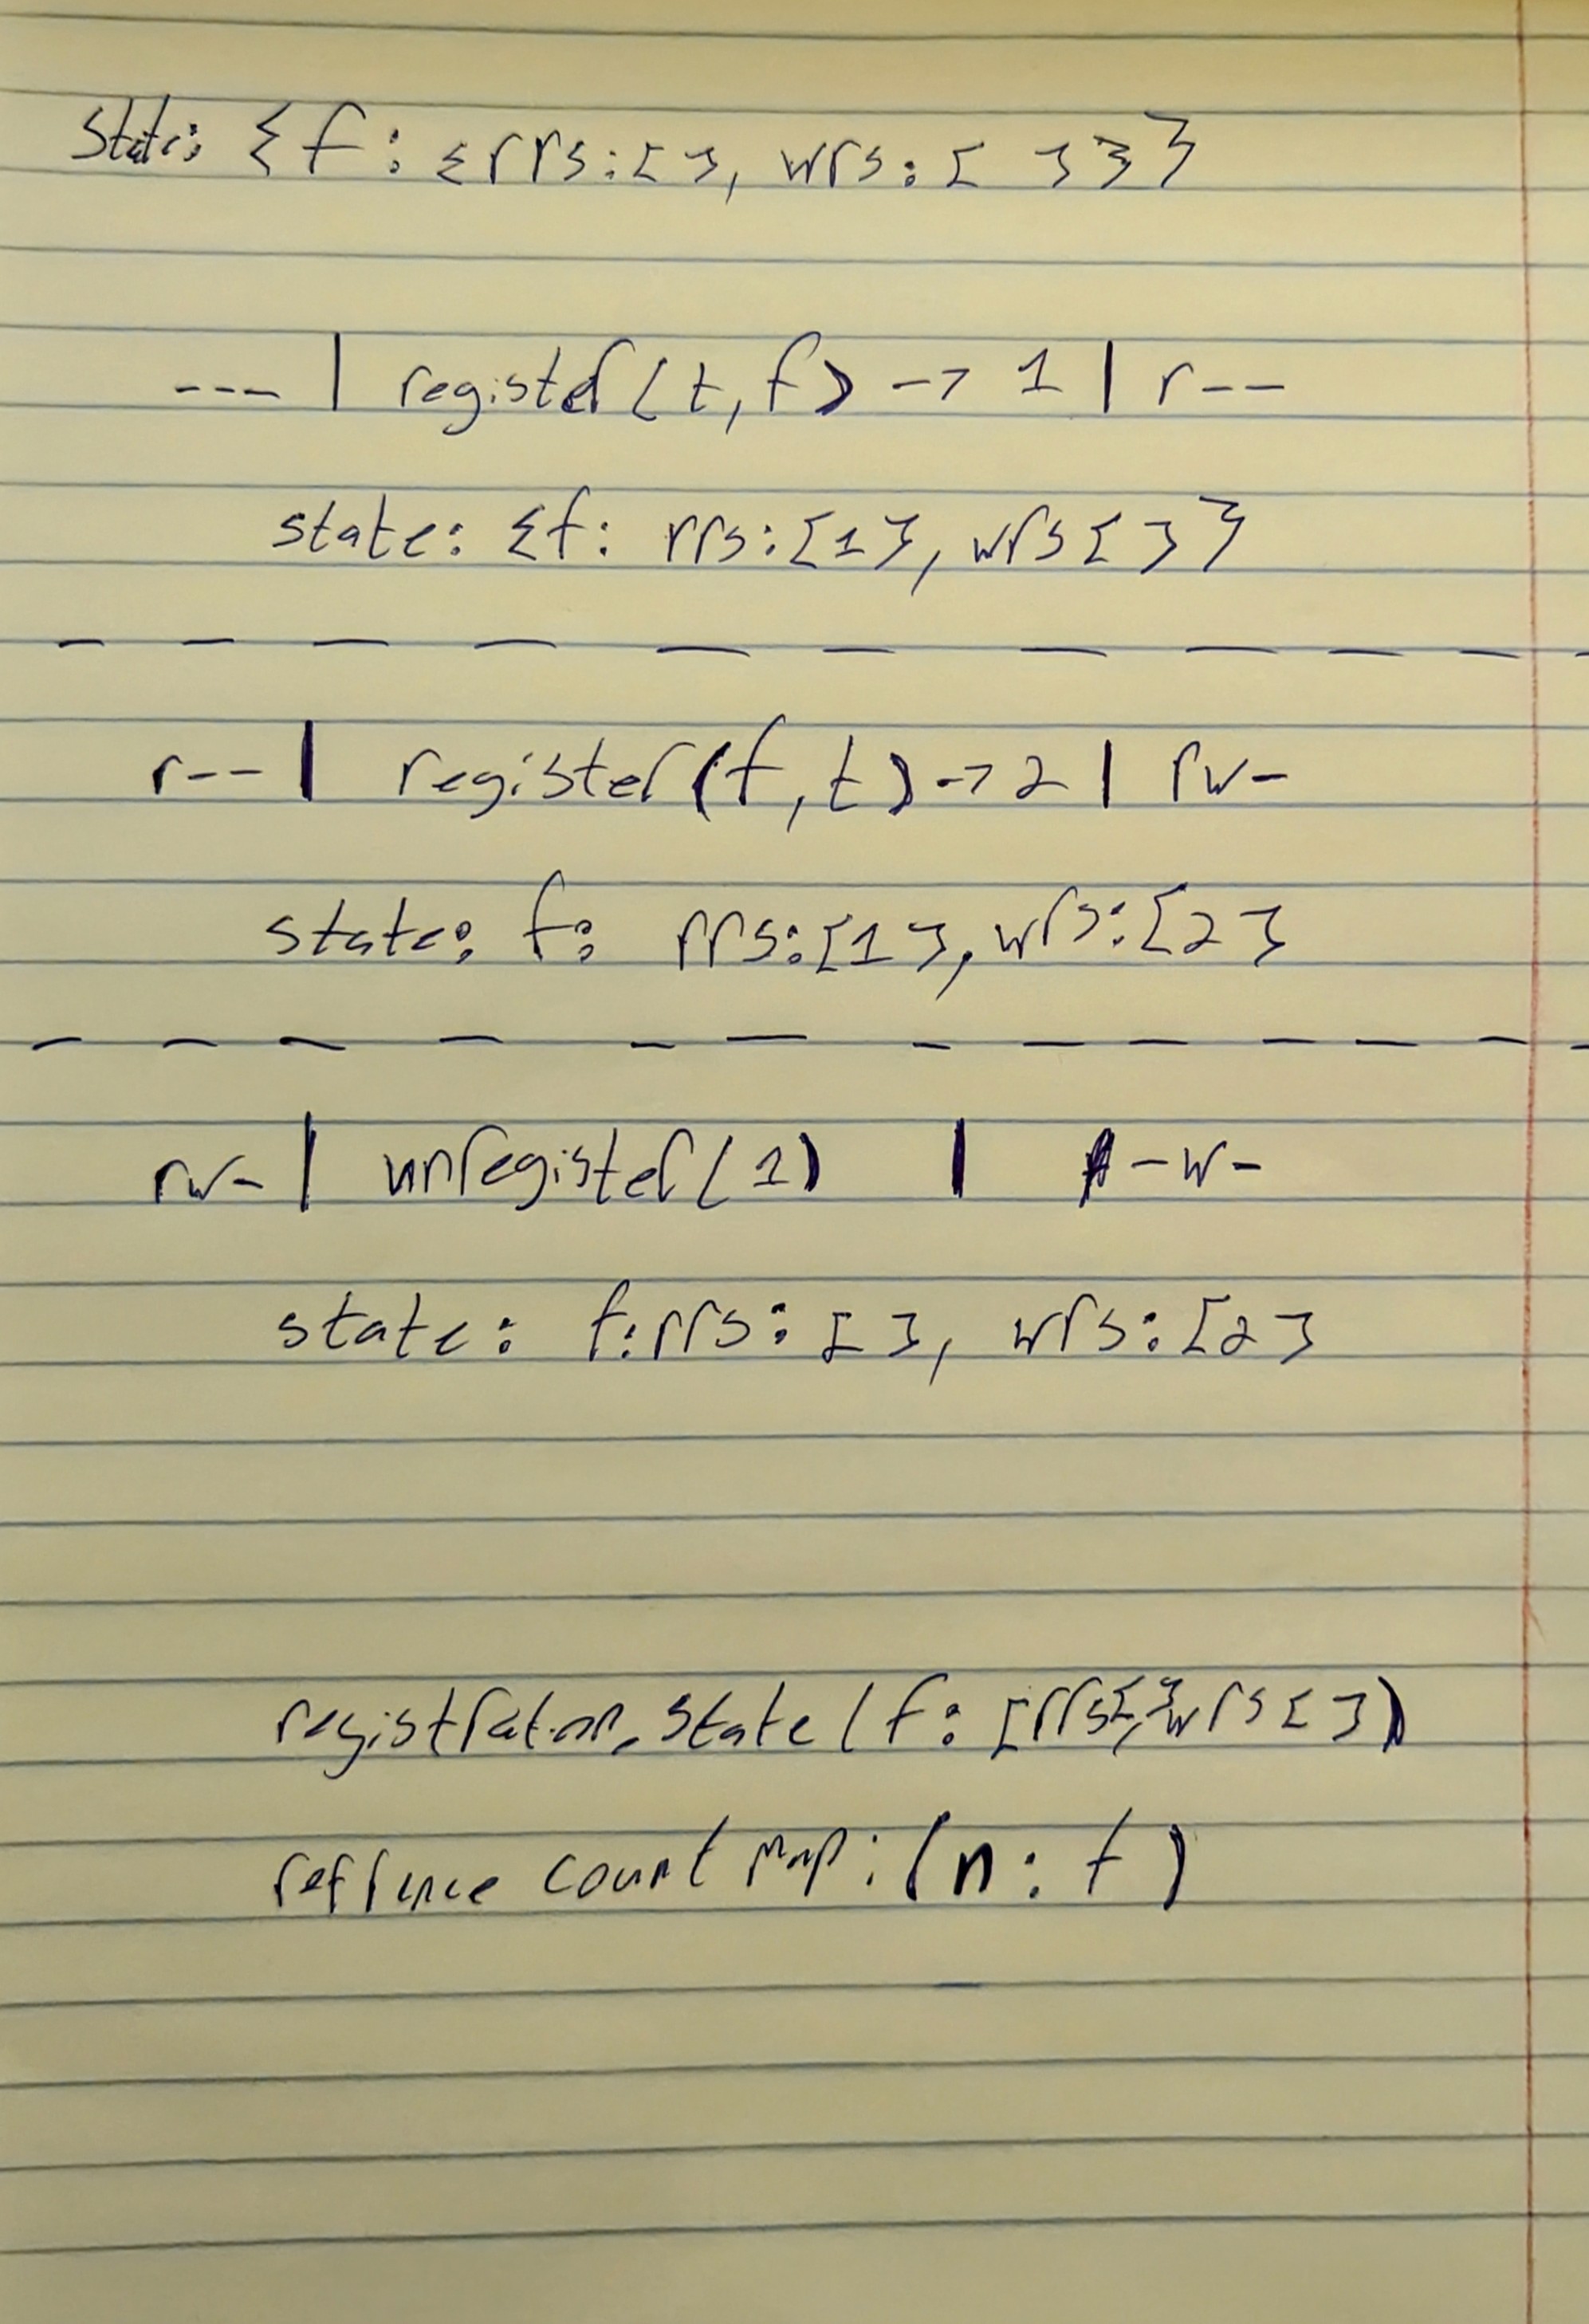 state: {f: {rrs:[], wrs:[ ]}}
--- | register(t,f) -> 1 | r--
state: {f: rrs:[1], wrs[]}
r-- | register(f,t) -> 2 | rw-
state: f: rrs:[1], wrs:[2]
rw- | unregister(1) | -w-
state: f:rrs:[], wrs:[2]
registration state (f: [rrs[], wrs[])
reffrence count map: (n: f)